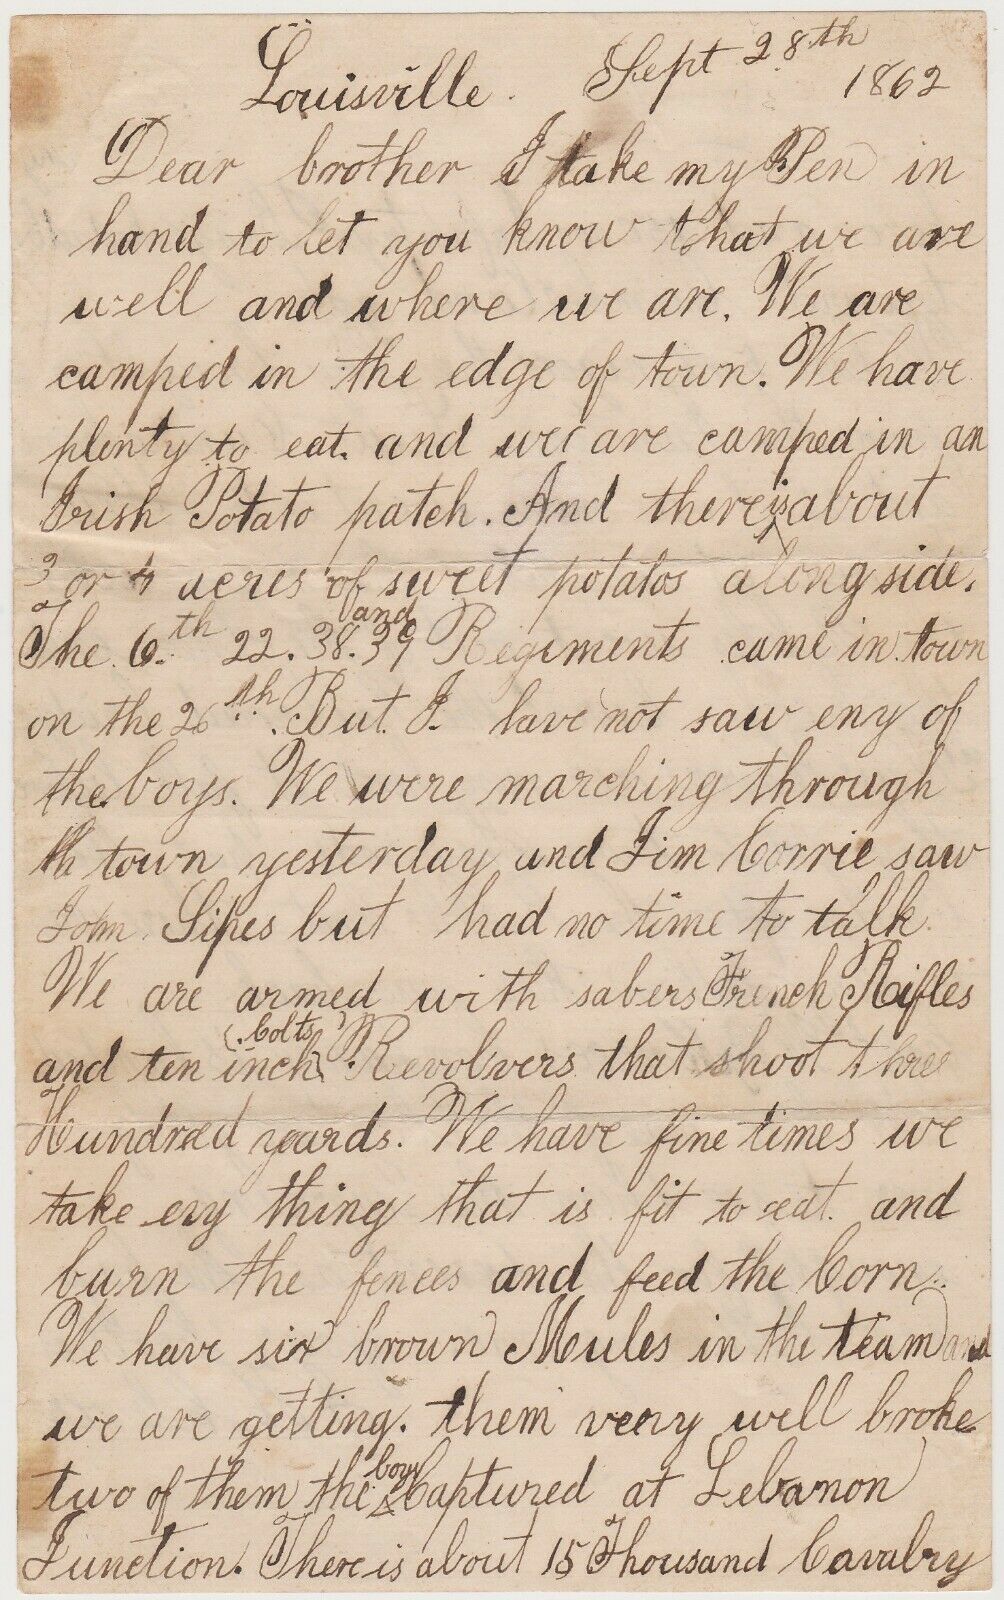 Louisville. Sept 28th
1862
Dear brother I take my Pen in
hand to let you know that we are
well and where we are. We are
camped in the edge of town. We have
plenty to eat. and we are camped in an
Irish Potato patch. And there is about
3 or 4 acres of sweet potatos along side.
The 6.th 22. 38. and 39 Regiments came in town
on the 26th. But. I. have not saw eny of
the boys. We were marching through
th town yesterday and Jim Corrie saw
John Sipes but had no time to talk
We are armed with sabers French Rifles
and ten inch (Colts) Revolvers that shoot three
Hundred yards. We have fine times we
take evy thing that is fit to eat. and
burn the fences and feed the Corn.
We have six brown Mules in the team and
we are getting. them very well broke
two of them the boys Captured at Lebanon
Junction. There is about 15 Thousand Cavalry